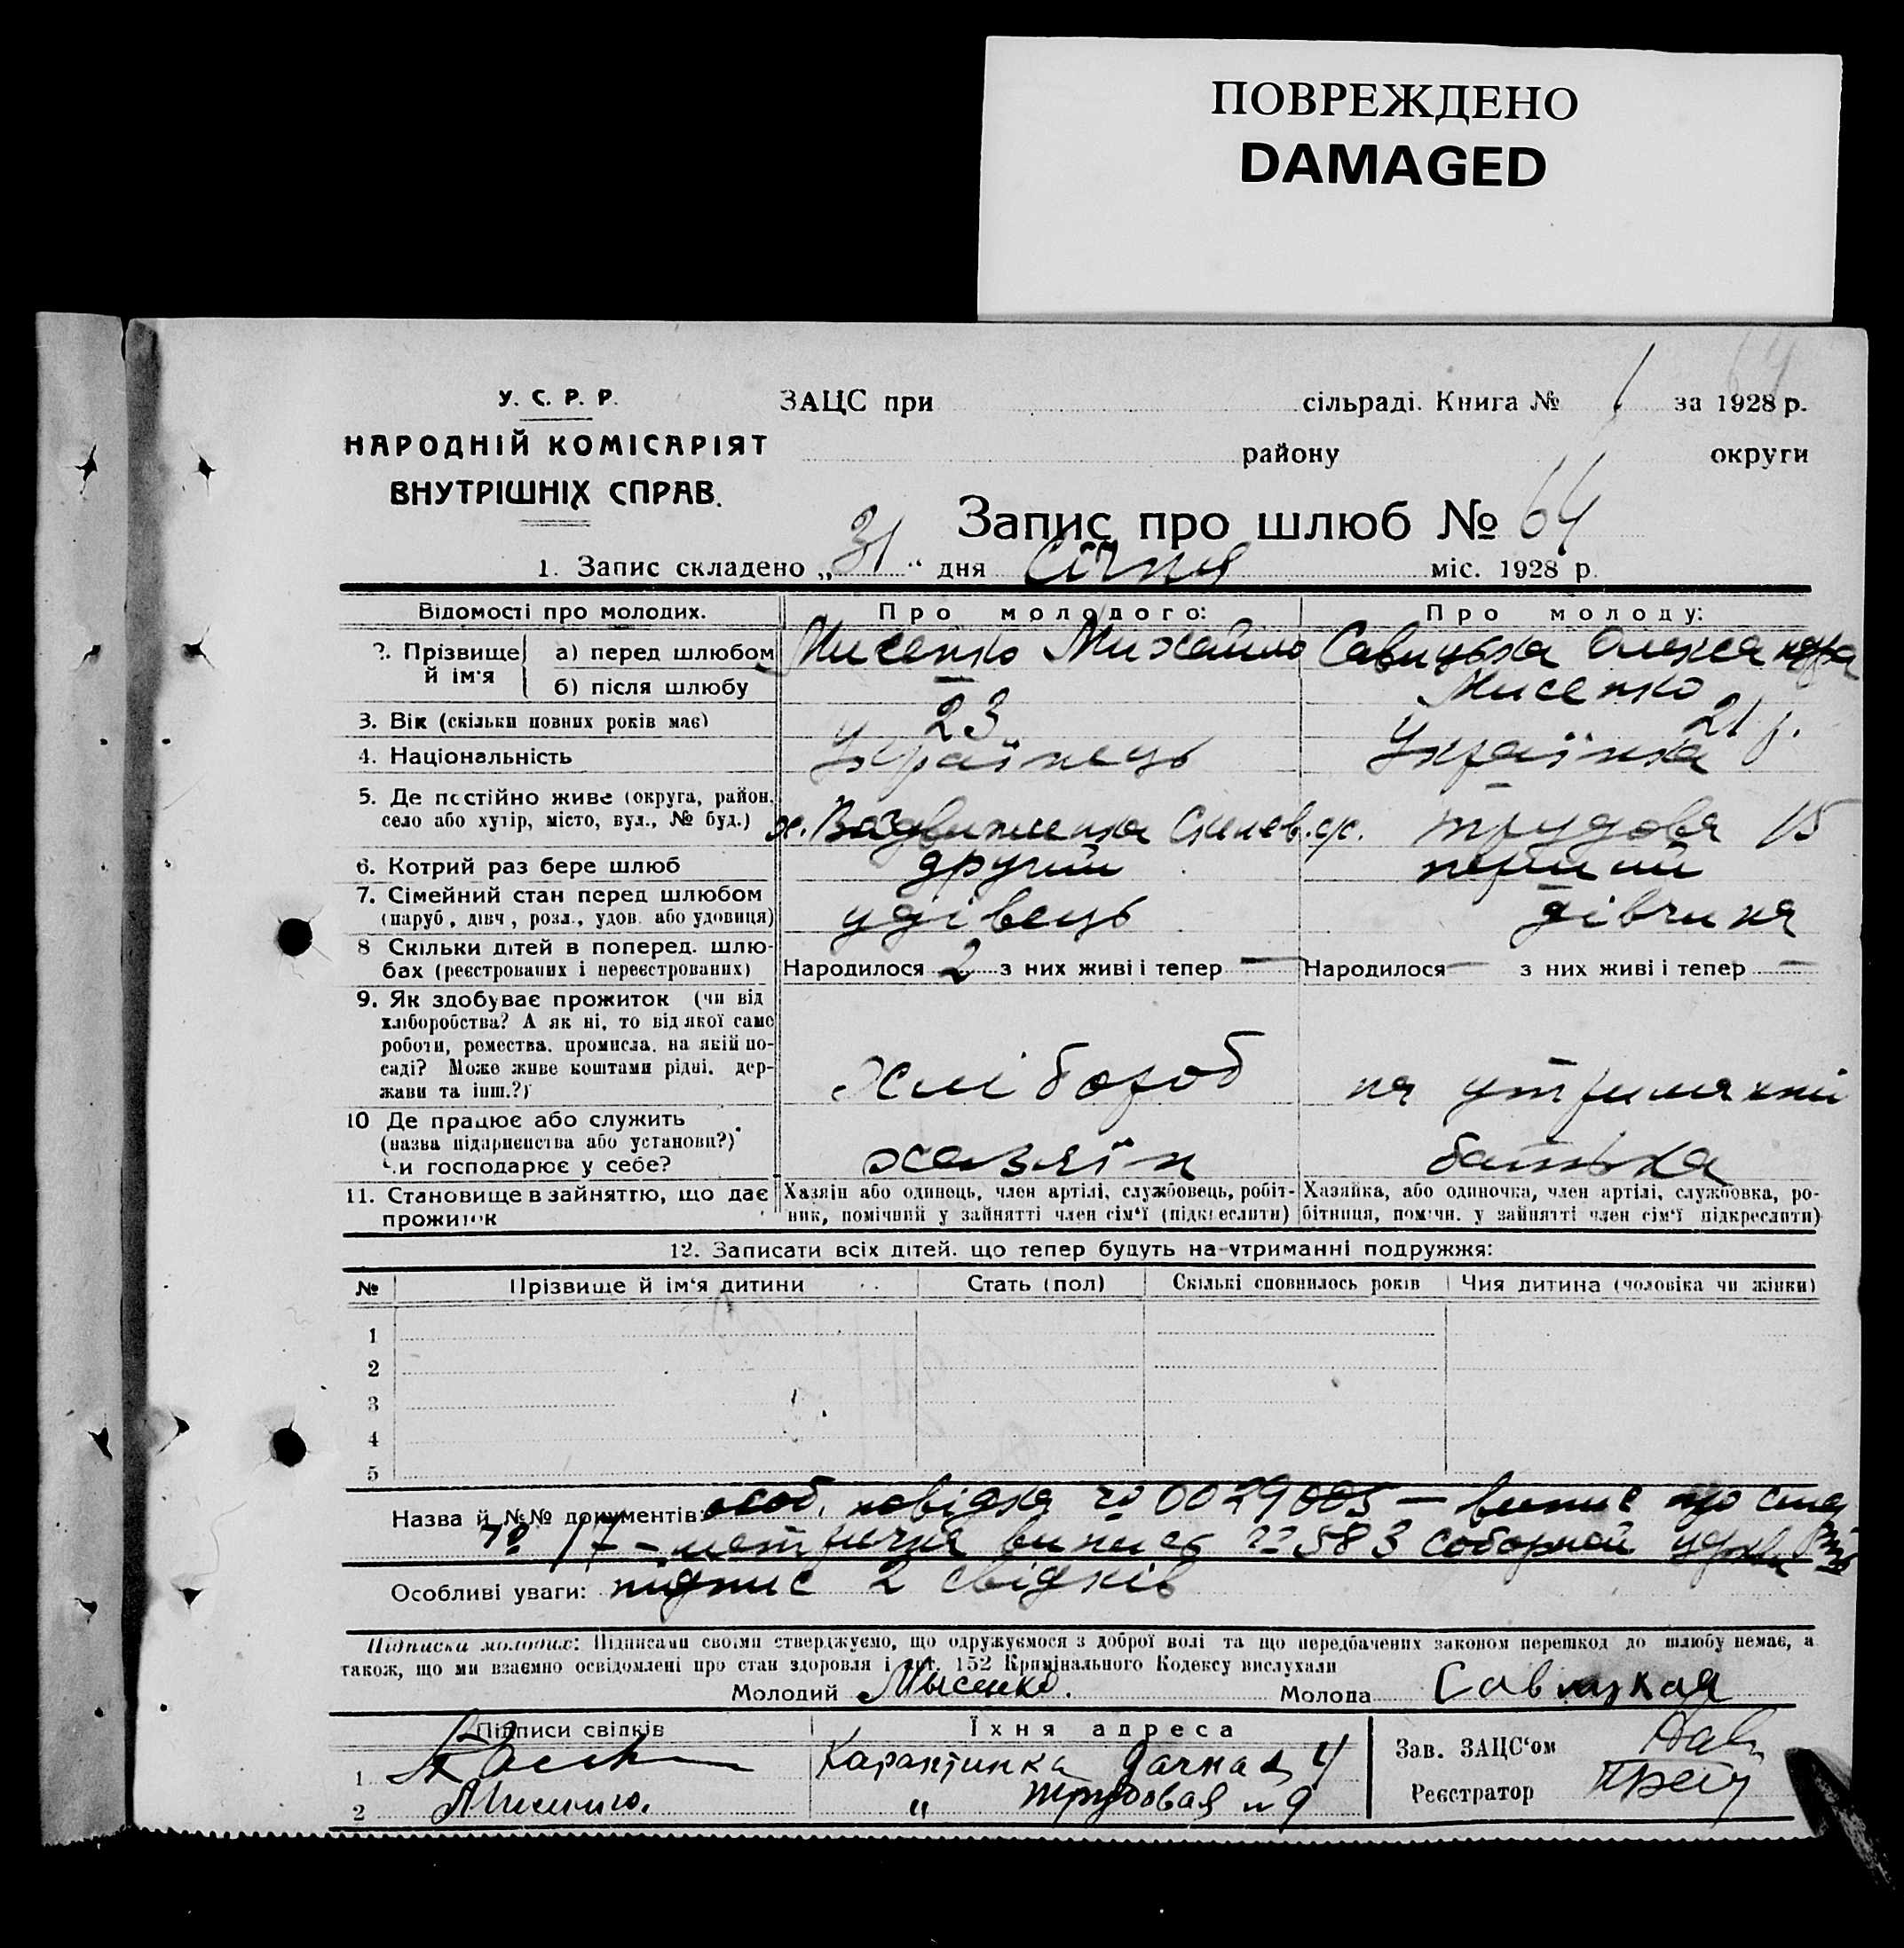 ПОВРЕЖДЕНО
DAMAGED
У. С. Р. Р.
НАРОДНІЙ КОМІСАРІЯТ
ВНУТРІШНІХ СПРАВ.
ЗАЦС при сільраді. Книга № 1 за 1928 р.
району округи
Запис про шлюб № 64
1. Запис складено „31“ дня Січня міс. 1928 р.
Відомості про молодих. Про молодого: Про молоду:
2. Прізвище й ім'я а) перед шлюбом Мисенко Михайло Савицька Олександра
б) після шлюбу — Мисенко
3. Вік (скільки повних років має) 23 21 р.
4. Національність Українець Українка
5. Де постійно живе (округа, район, село або хутір, місто, вул., № буд.) х. Воздвиженка трудова 15
6. Котрий раз бере шлюб другий перший
7. Сімейний стан перед шлюбом (паруб, дівч, розл., удов. або удовиця) удівець дівчина
8 Скільки дітей в поперед. шлюбах (реєстрованих і нереєстрованих) Народилося 2 з них живі і тепер — Народилося — з них живі і тепер —
9. Як здобуває прожиток (чи від хліборобства? А як ні, то від якої саме роботи, ремества, промисла, на якій посаді? Може живе коштами рідні, держави та інш.?) хлібороб на утриманні
10 Де працює або служить (назва підприємства або установи?) Чи господарює у себе? хазяїн батька
11. Становище в зайняттю, що дає прожиток
Хазяїн або одинець, член артілі, службовець, робітник, помічний у зайнятті член сім'ї (підкреслити)
Хазяйка, або одиночка, член артілі, службовка, робітниця, помічн. у зайнятті член сім'ї підкреслити)
12. Записати всіх дітей, що тепер будуть на утриманні подружжя:
№ Прізвище й ім'я дитини Стать (пол) Скількі сповнилось років Чия дитина (чоловіка чи жінки)
1
2
3
4
5
Назва й №№ документів: особ. повідка 0029005 — випис про
№ 17 — метрична випись 583 соборной
Особливі уваги: підпис 2 свідків
Підписка молодих: Підписами своїми стверджуємо, що одружуємося з доброї волі та що передбачених законом перешкод до шлюбу немає, а
також, що ми взаємно освідомлені про стан здоровля і арт. 152 Кримінального Кодексу вислухали
Молодий Мысенко. Молода Савицкая
Підписи свідків Їхня адреса Зав. ЗАЦС'ом
1 Карантинка Дачная 4
2 " Трудовая № 9 Реєстратор